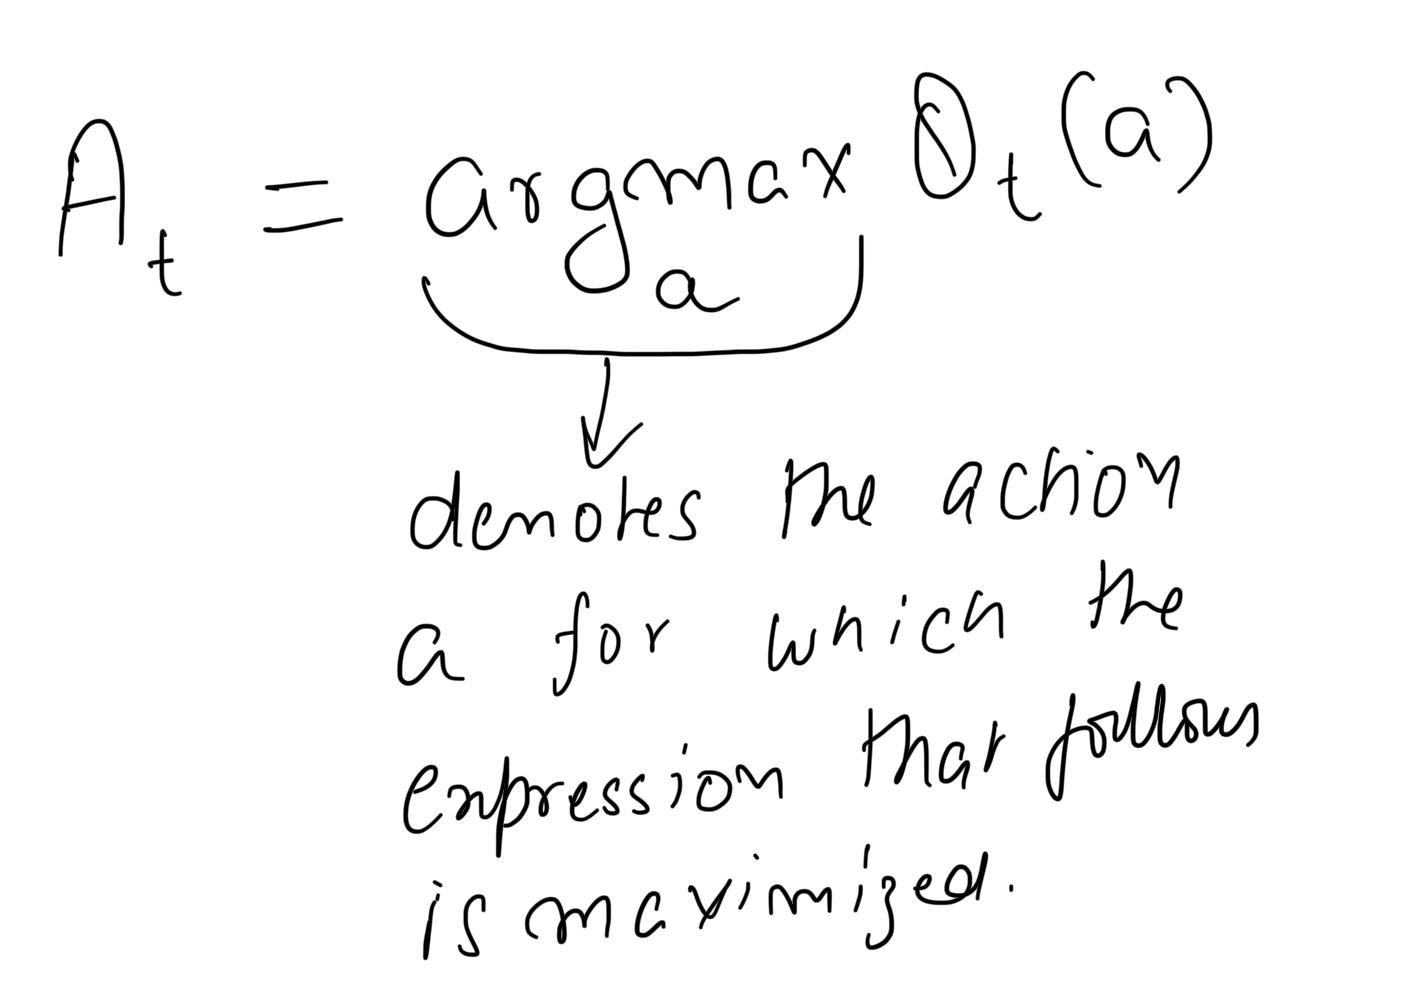 A_t = argmax_a Q_t(a)
denotes the action
a for which the
expression that follows
is maximized.